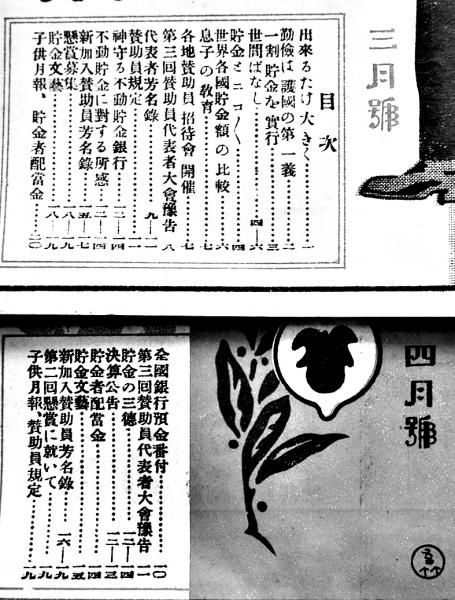 三月號
目次
出來るだけ大きく……一
勤儉は護國の第一義……二
一割貯金を實行……三
世間ばなし……四—六
貯金とニコ〱……四
世界各國貯金額の比較……六
息子の敎育……七
各地賛助員招待會開催……七
第三回賛助員代表者大會豫告……八
代表者芳名錄……九—一一
賛助員規定……一一
神守る不動貯金銀行……一二—一四
不動貯金に對する所感……一二—一四
新加入賛助員芳名錄……一五—一七
懸賞募集……一八—一九
貯金文藝……一八—一九
子供月報、貯金者配當金……二〇
四月號
全國銀行預金番付……一〇
第三回賛助員代表者大會豫告……一一
貯金の三德……一二—一四
決算公告……一二—一三
貯金者配當金……一四
貯金文藝……一五
新加入賛助員芳名錄……一六—一九
第二回懸賞に就いて……一九
子供月報、賛助員規定……一九